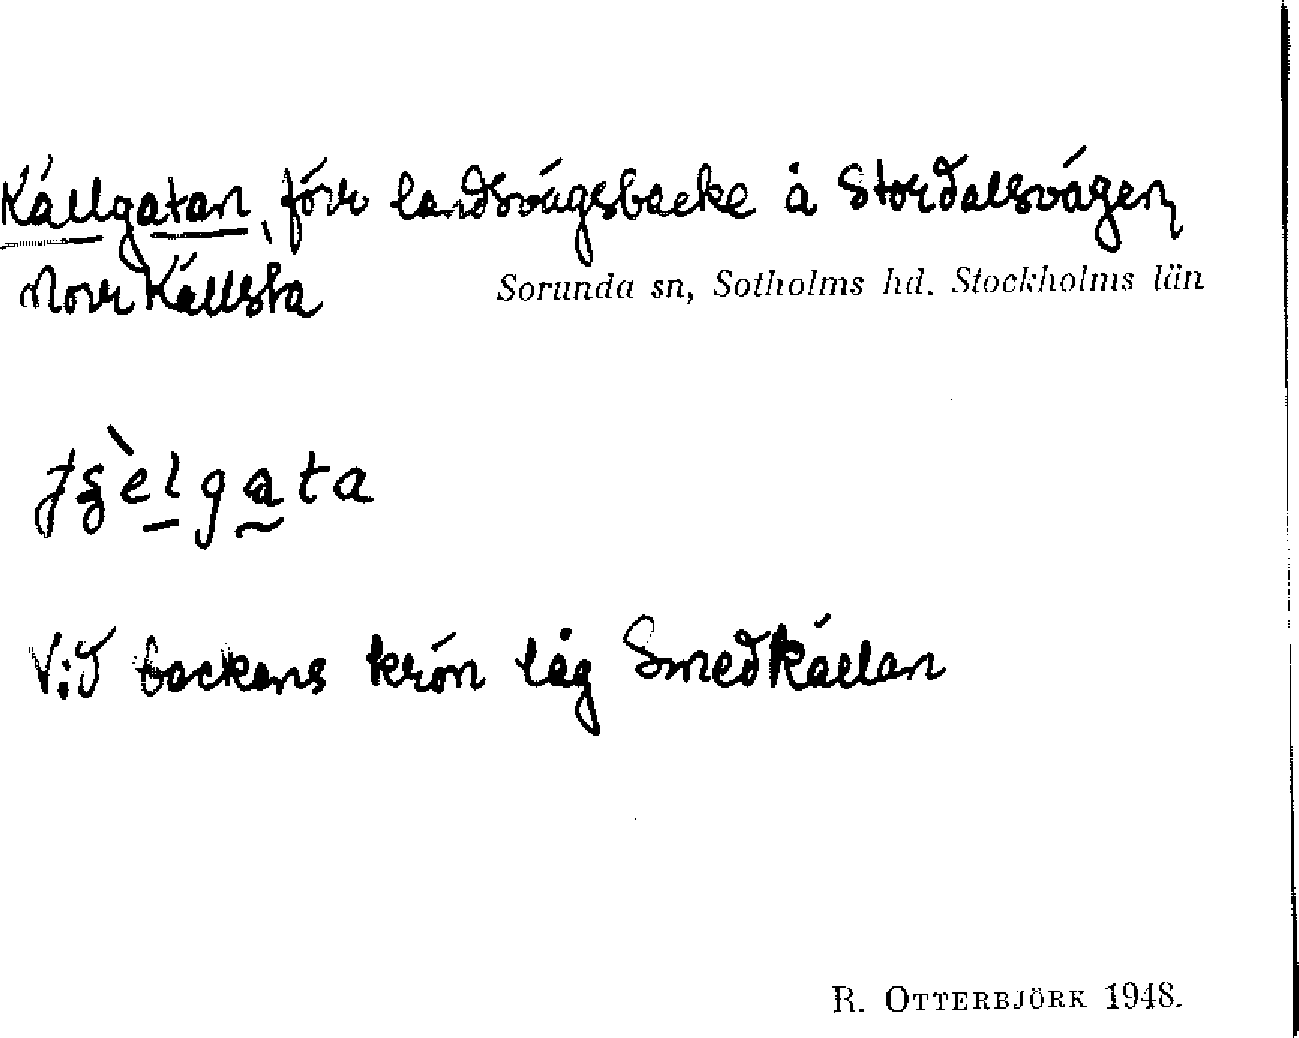 Källgatan, förr landsvägsbacke å Stordalsvägen,
Norr Källsta
Sorunda sn, Sotholms hd. Stockholms län
Vid backens krön låg Smedkällan
R. OTTERBJÖRK 1948.